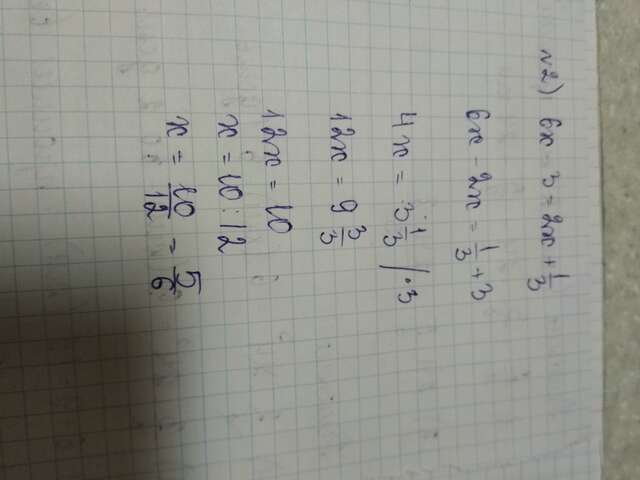 №2) 6x - 3 = 2x + 1/3
6x - 2x = 1/3 + 3
4x = 3 1/3 / · 3
12x = 9 3/3
12x = 10
x = 10 : 12
x = 10/12 = 5/6